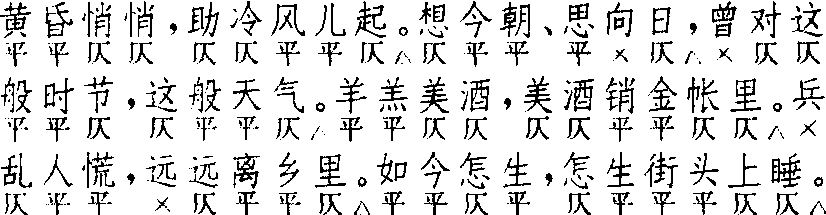 黄昏悄悄，助冷风儿起。想今朝、思向日，曾对这
平平仄仄 仄仄平平仄△仄平平 平×仄△×仄仄
般时节，这般天气。羊羔美酒，美酒销金帐里。兵
平平仄 仄平平仄△平平仄仄 仄仄平平仄仄△×
乱人慌，远远离乡里。如今怎生，怎生街头上睡。
仄平平 ×仄平平仄△平平仄平 仄平平平仄仄△